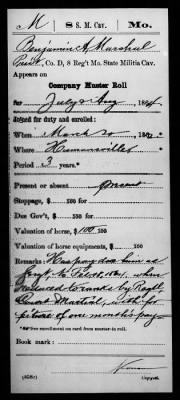 M 8 S. M. Cav. Mo.
Benjamin A. Marshal
Priv't, Co. D, 8 Reg't Mo. State Militia Cav.
Appears on
Company Muster Roll
for July & Aug, 1864.
Joined for duty and enrolled:
When March 20, 1862.*
Where Humansville
Period 3 years.*
Present or absent, present
Stoppage, $ 100 for
Due Gov't, $ 100 for
Valuation of horse, $ 100 100
Valuation of horse equipments, $ 100
Remarks: Has pay due him as
Serg't to Feb. 1864, when
reduced to ranks by Reg'l
Court Martial, with for
fiture of one month's pay
*See enrollment on card from muster-in roll.
Book mark:
(858c) Copyist.